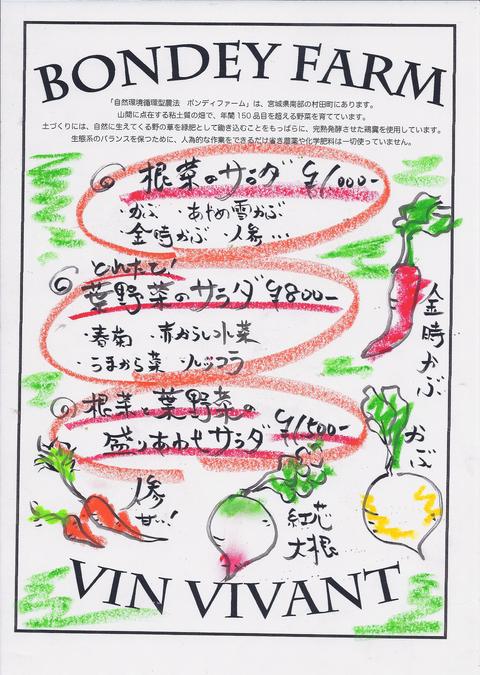 BONDEY FARM
「自然環境循環型農法　ボンディファーム」は、宮城県南部の村田町にあります。
山間に点在する粘土質の畑で、年間150品目を超える野菜を育てています。
土づくりには、自然に生えてくる野の草を緑肥として働き込むことをもっぱらに、完熟発酵させた鶏糞を使用しています。
生態系のバランスを保つために、人為的な作業をできるだけ省き農薬や化学肥料は一切使っていません。
根菜のサラダ ¥1000-
・かぶ ・あやめ雪かぶ
・金時かぶ 人参…
とれたて!
葉野菜のサラダ ¥800-
・春菊 ・赤からし水菜
・うまから菜 ・ルッコラ
根菜と葉野菜の
盛りあわせサラダ ¥1500-
金時かぶ
かぶ
人参
甘…!
紅芯
大根
VIN VIVANT